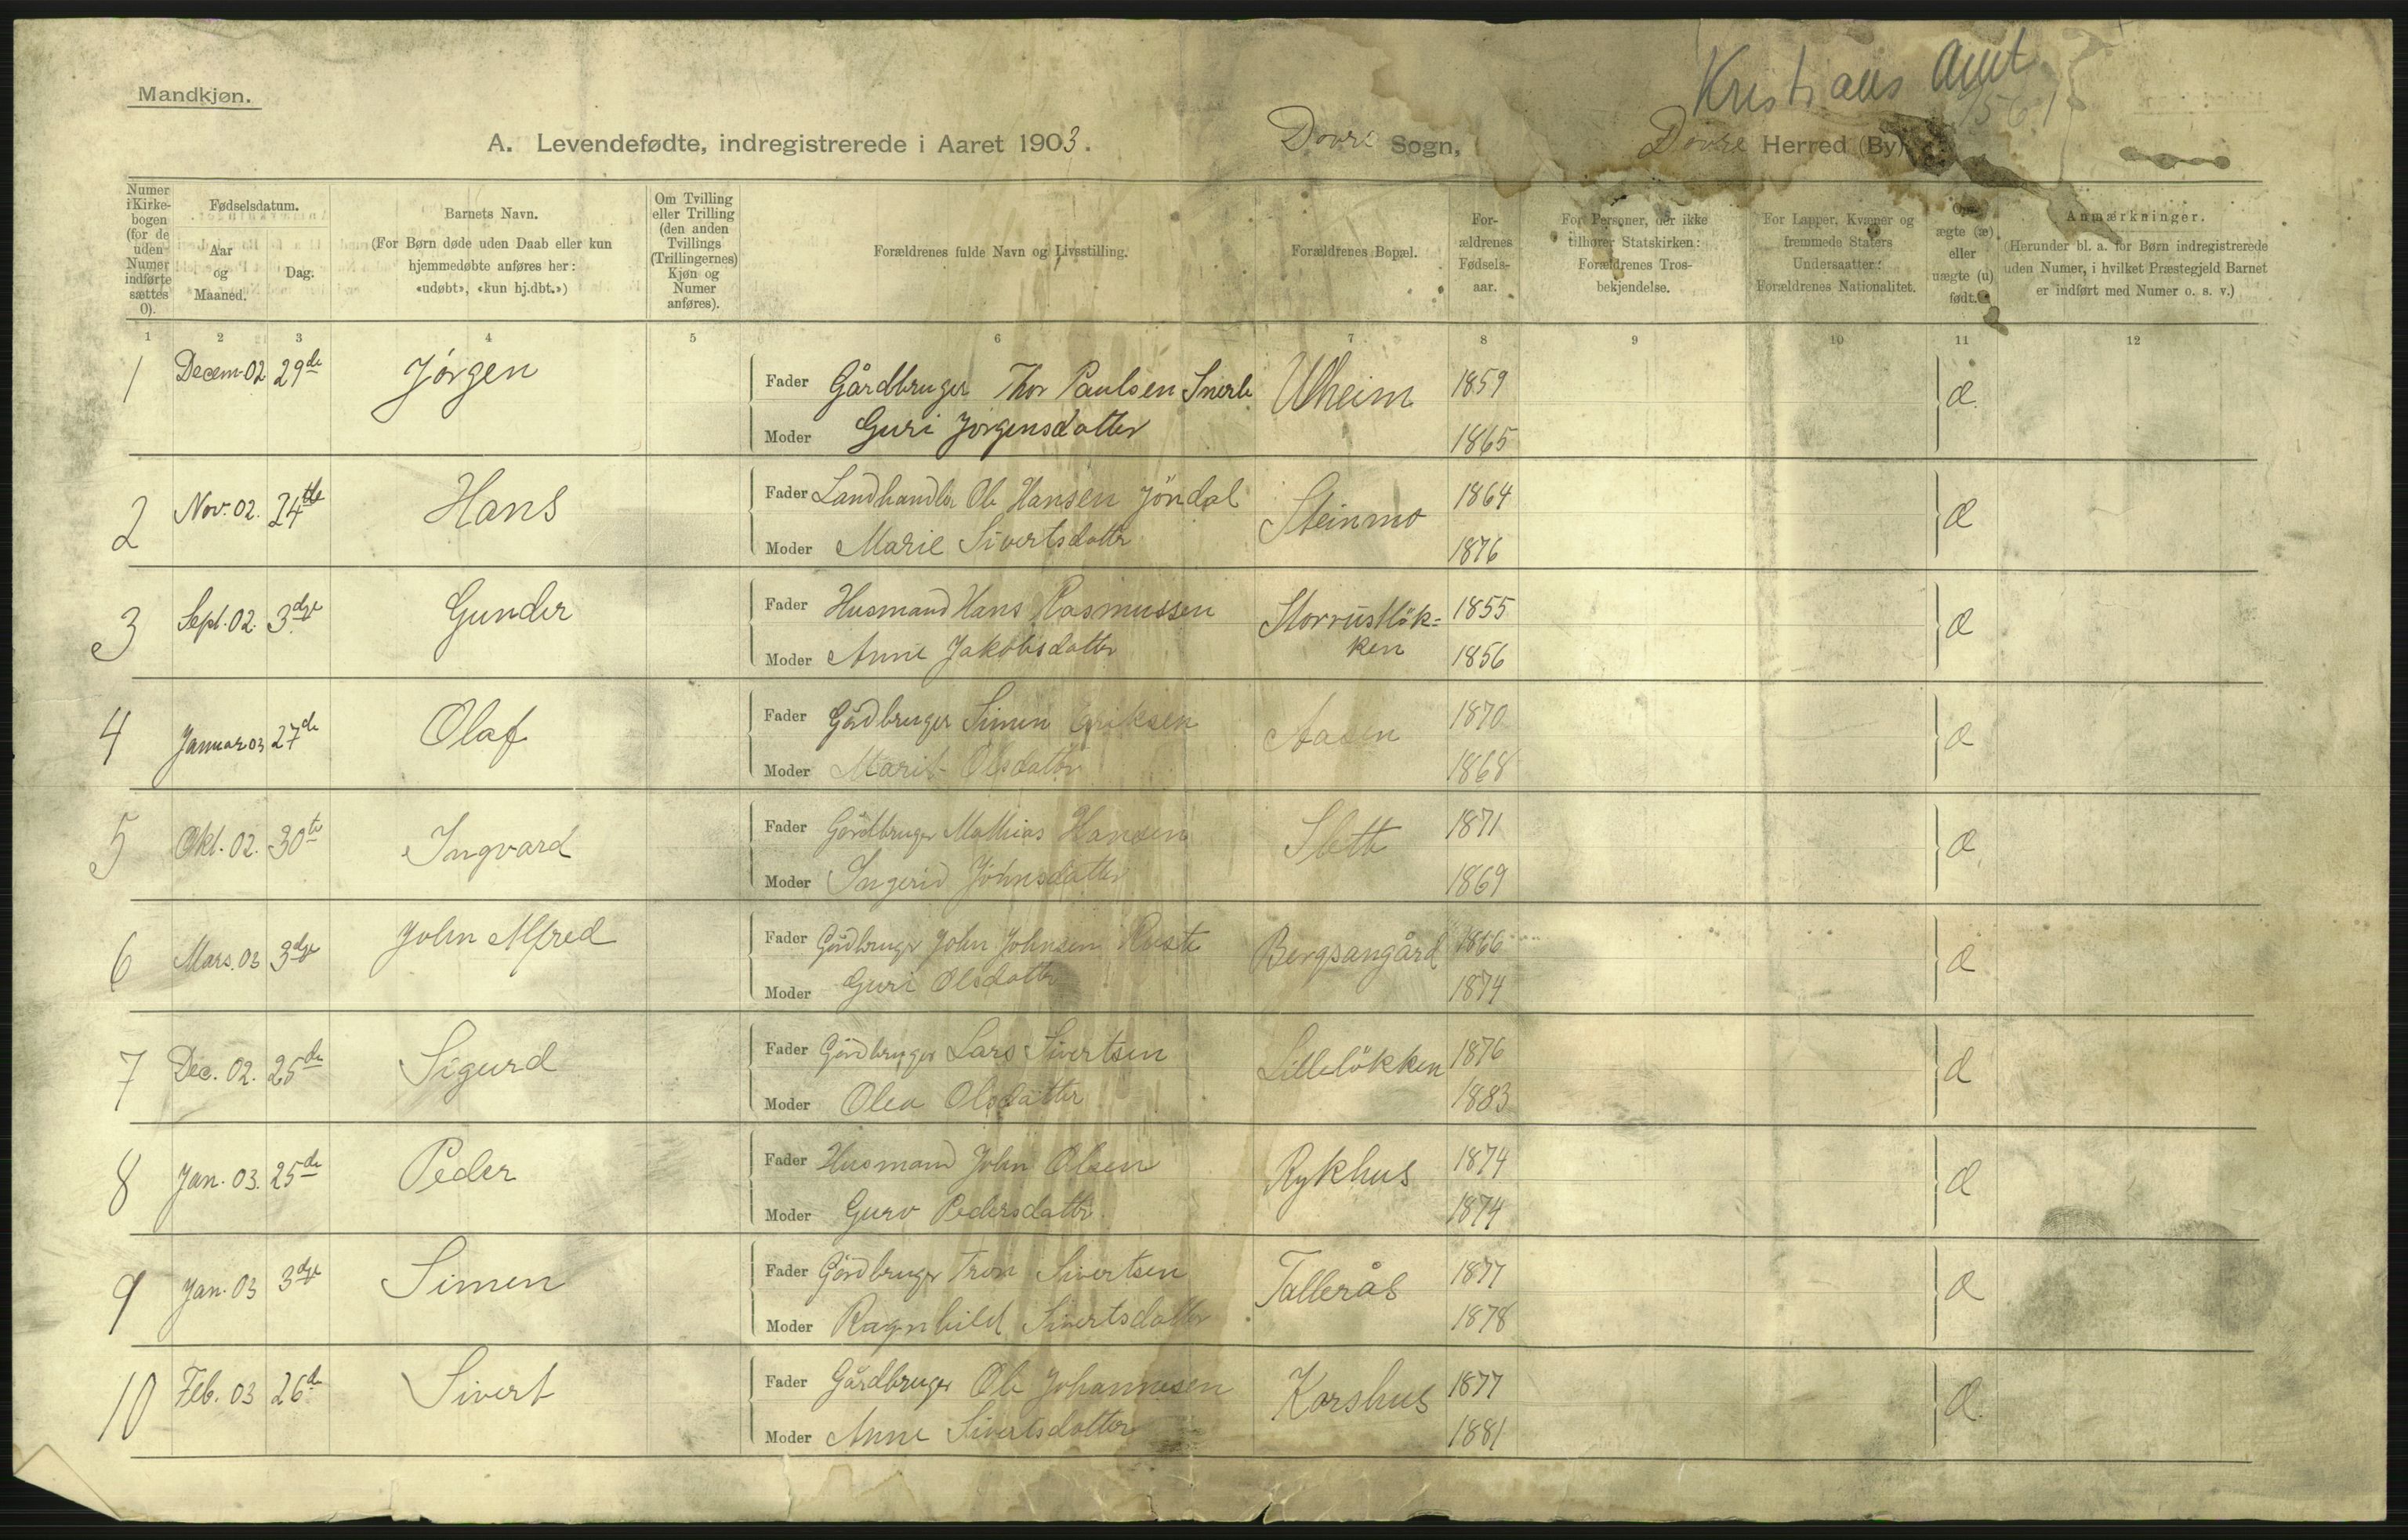 Kristians Amt
1561
Mandkjøn.
A. Levendefødte, indregistrerede i Aaret 1903. Dovre Sogn, Dovre Herred (By).
Numer i Kirkebogen (for de uden Numer indførte sættes 0).
Fødselsdatum.
Aar og Maaned.
Dag.
Barnets Navn.
(For Børn døde uden Daab eller kun hjemmedøbte anføres her: «udøbt», «kun hj.dbt.»)
Om Tvilling eller Trilling (den anden Tvillings (Trillingernes) Kjøn og Numer anføres).
Forældrenes fulde Navn og Livsstilling.
Forældrenes Bopæl.
Forældrenes Fødselsaar.
For Personer, der ikke tilhører Statskirken: Forældrenes Trosbekjendelse.
For Lapper, Kvæner og fremmede Staters Undersaatter: Forældrenes Nationalitet.
Om ægte (æ) eller uægte (u) født.
Anmærkninger.
(Herunder bl. a. for Børn indregistrerede uden Numer, i hvilket Præstegjeld Barnet er indført med Numer o. s. v.)
1 2 3 4 5 6 7 8 9 10 11 12
1 Decem-02 29de Jörgen Fader Gårdbruger Thor Paulsen Snerle Ulheim 1859 æ.
Moder Guri Jörgensdatter 1865
2 Nov. 02. 24de Hans Fader Landhandler Ole Hansen Jöndal Steinmo 1864 æ
Moder Marie Sivertsdatter 1876
3 Sept. 02. 3dje Gunder Fader Husmand Hans Rasmussen Storrustlök= 1855 æ
ken
Moder Anne Jakobsdatter 1856
4 Januar 03 27de Olaf Fader Gårdbruger Simen Eriksen Aasen 1870 æ
Moder Marit Olsdatter 1868
5 Okt. 02. 30te Ingvard Fader Gårdbruger Mathias Hansen Slette 1871 æ
Moder Ingerid Johnsdatter 1869
6 Mars. 03 3dje John Alfred Fader Gårdbruger John Johnsen Ruste Bergsangård 1866 æ
Moder Guri Olsdatter 1874
7 Dec. 02. 25de Sigurd Fader Gårdbruger Lars Sivertsen Lillelökken 1876 æ
Moder Olea Olsdatter 1883
8 Jan. 03. 25de Peder Fader Husmand John Olsen Rykhus 1874 æ
Moder Guro Pedersdatter. 1874
9 Jan. 03 3dje Simen Fader Gårdbruger Tron Sivertsen Tallerås 1877 æ
Moder Ragnhild Sivertsdatter 1878
10 Feb. 03 26de Sivert Fader Gårdbruger Ole Johannesen Korshus 1877 æ.
Moder Anne Sivertsdatter 1881